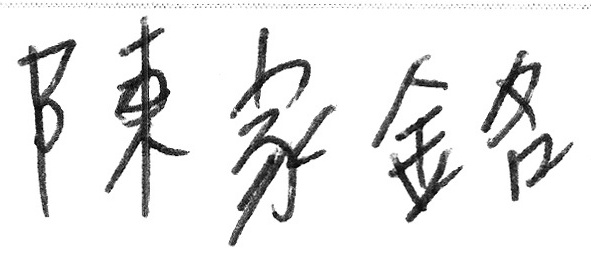 陳家銘